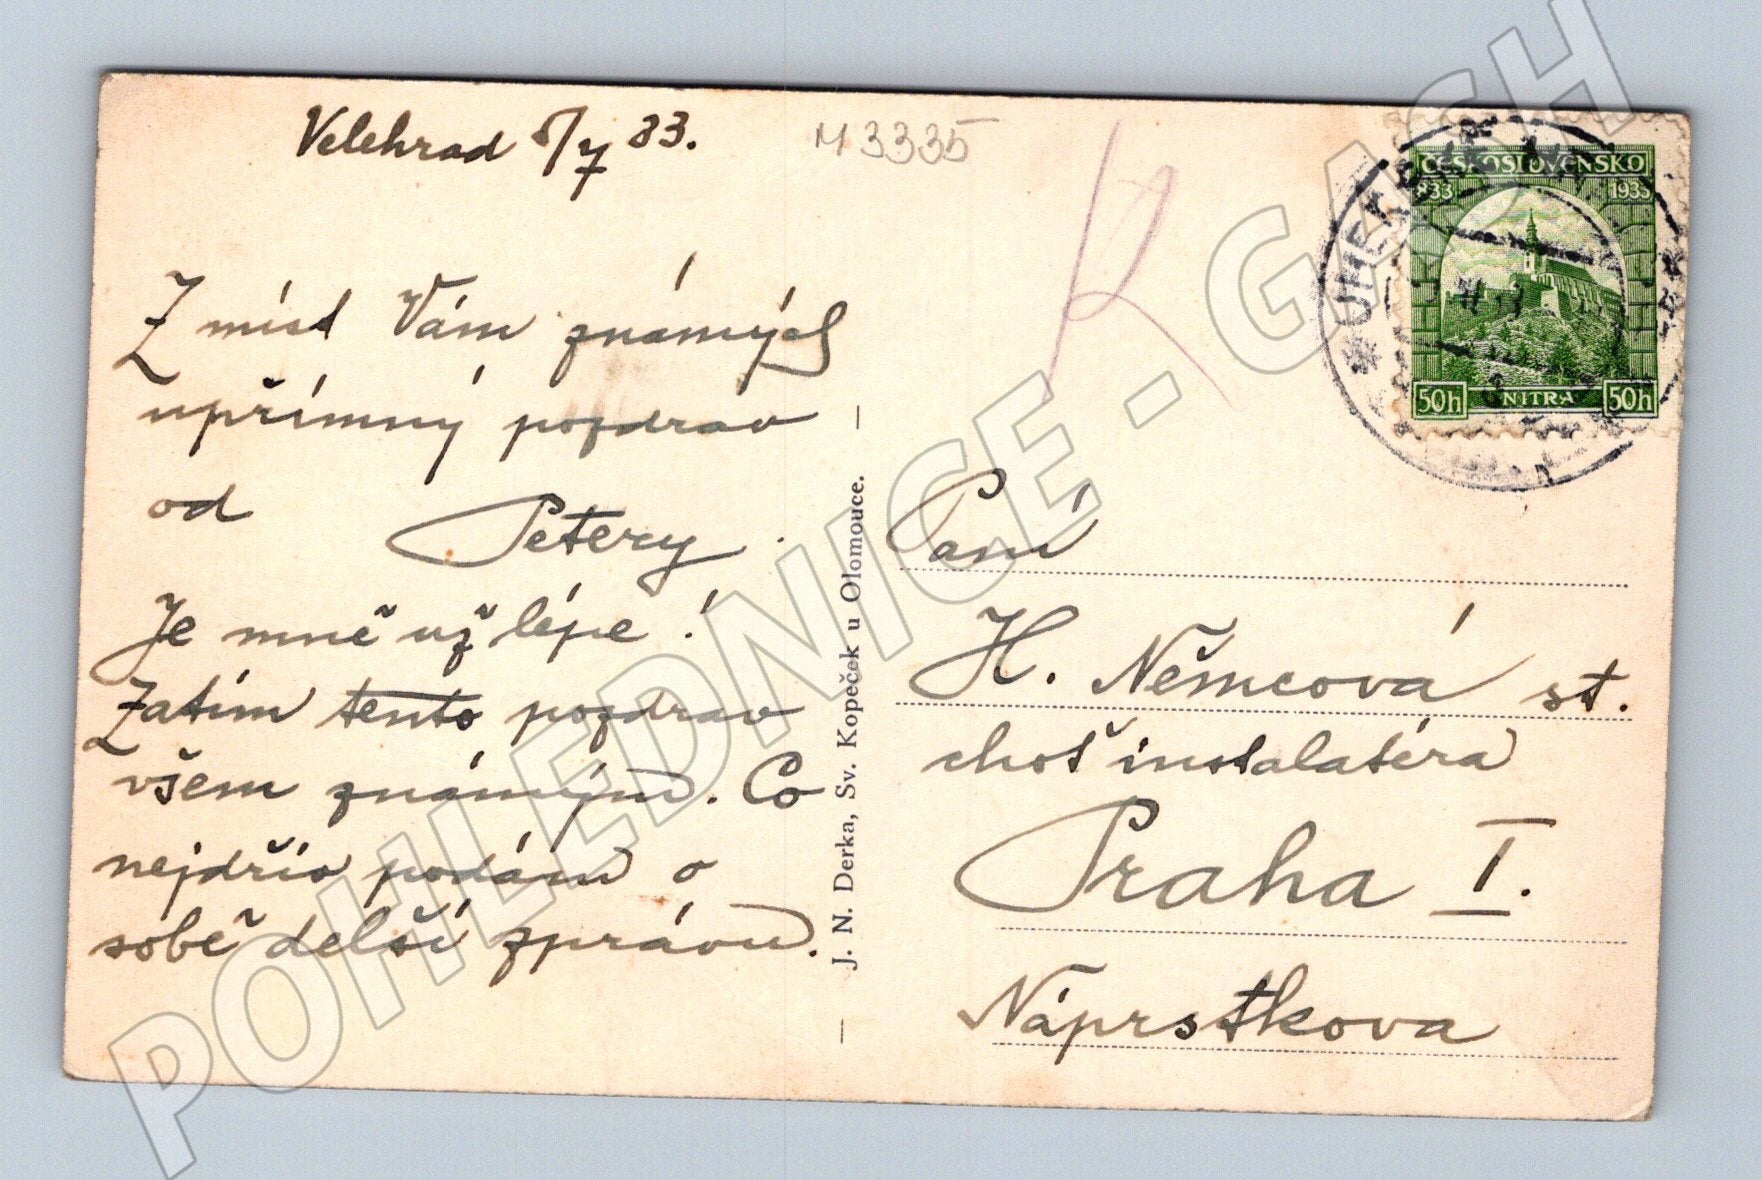 Velehrad 8/7 33.
M 3335
Z míst Vám známých
upřímný pozdrav
od Petery.
Je mně už lépe!
Zatím tento pozdrav
všem známým. Co
nejdřív podám o
sobě delší zprávu.
— J. N. Derka, Sv. Kopeček u Olomouce. —
ČESKOSLOVENSKO
833 1933
50h NITRA 50h
UHERSKÉ
Paní
H. Němcová st.
choť instalatéra
Praha I.
Náprstkova
POHLEDNICE - GASH